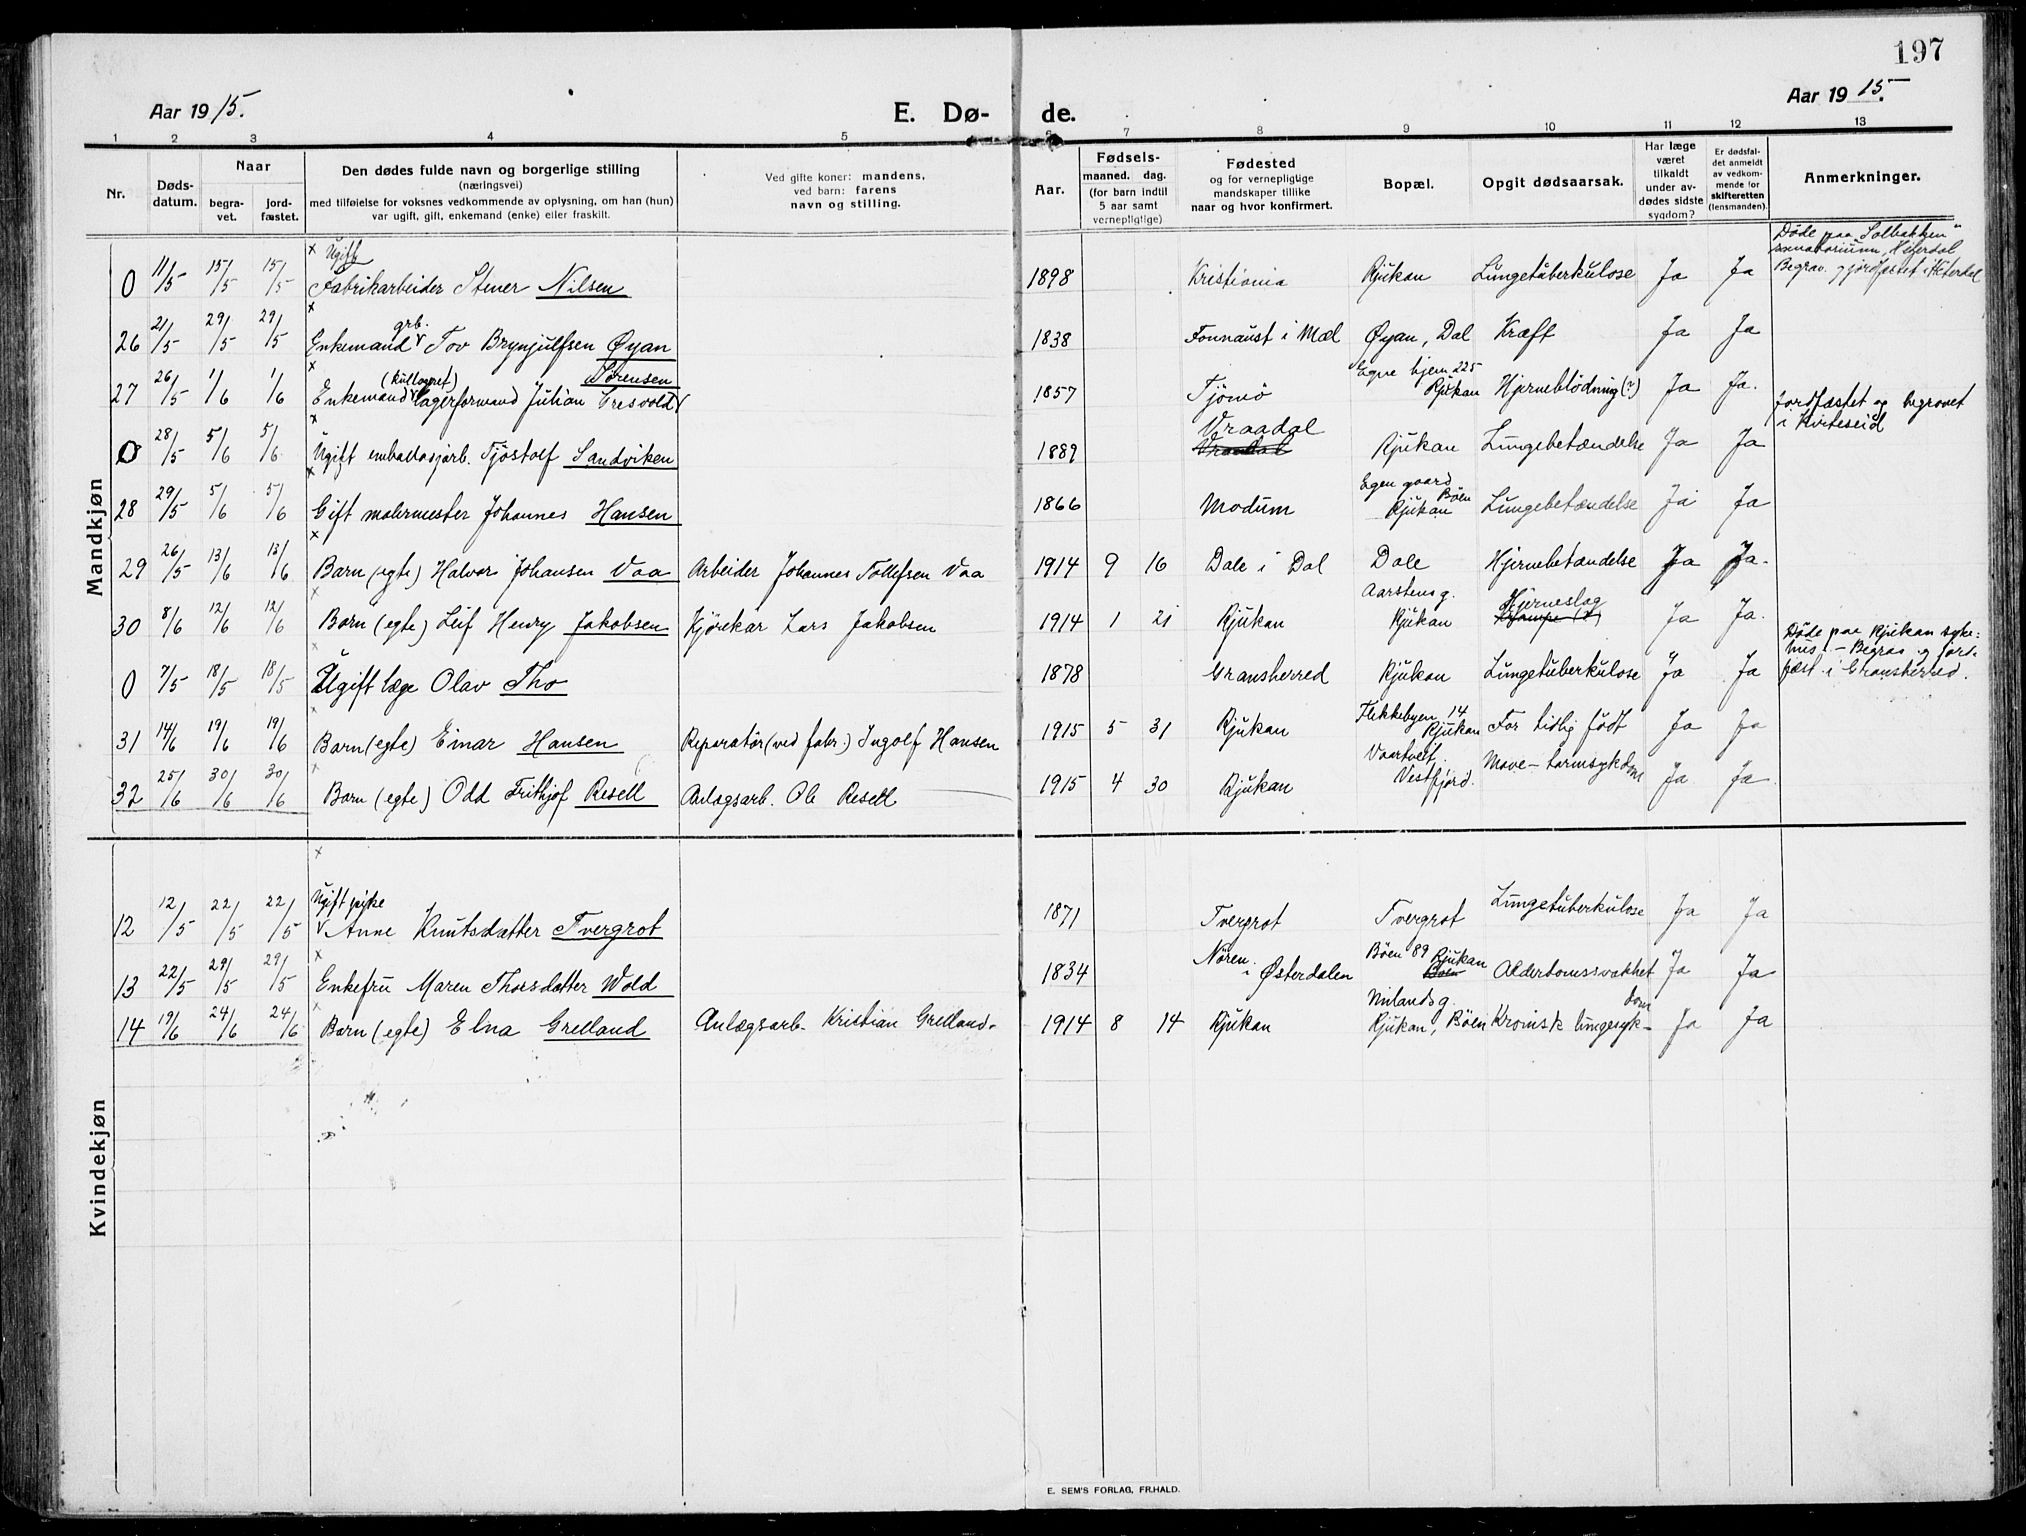 197
Aar 1915.
E. Dø-
de.
Aar 1915.
1 2 3 4 5 6 7 8 9 10 11 12 13
Nr.
Døds-
datum.
Naar
begra-
vet.
jord-
fæstet.
Den dødes fulde navn og borgerlige stilling
(næringsvei)
med tilføielse for voksnes vedkommende av oplysning, om han (hun)
var ugift, gift, enkemand (enke) eller fraskilt.
Ved gifte koner: mandens,
ved barn: farens
navn og stilling.
Aar.
Fødsels-
maaned. dag.
(for barn indtil
5 aar samt
vernepligtige)
Fødested
og for vernepligtige
mandskaper tillike
naar og hvor konfirmert.
Bopæl.
Opgit dødsaarsak.
Har læge
været
tilkaldt
under av-
dødes sidste
sygdom?
Er dødsfal-
det anmeldt
av vedkom-
mende for
skifteretten
(lensmanden).
Anmerkninger.
Mandkjøn
x Ugift
0 11/5 15/5 15/5 Fabrikarbeider Stener Nilsen 1898 Kristiania Rjukan Lungetuberkulose Ja Ja
Døde paa "Solbakken"
sanatorium, Heterdal
Begrav. og jordfæstet i Heterdal
x grb.
26 21/5 29/5 29/5 Enkemand v Tov Brynjulfsen Øyan 1838 Fonnaust i Mæl Øyan, Dal Kræft Ja Ja
x (kullageret) Sørensen Egne hjem 225
27 26/5 1/6 1/6 Enkemand v lagerformand Julian Gresvold v 1857 Tjömö Rjukan Hjerneblödning (?) Ja Ja.
x Vraadal
0 28/5 5/6 5/6 Ugift emballasjarb. Tjöstolf Sandviken 1889 Vraadal Rjukan Lungebetændelse Ja Ja
Jordfæstet og begravet
i Kviteseid
x Egen gaard
Böen
28 29/5 5/6 5/6 Gift malermester Johannes Hansen 1866 Modum Rjukan Lungebetændelse Ja Ja
x
29 26/5 13/6 13/6 Barn (egte) Halvor Johansen Vaa Arbeider Johannes Tollefsen Vaa 1914 9 16 Dale i Dal Dale Hjernebetændelse Ja Ja.
x Aarstensg. Hjerneslag
30 8/6 12/6 12/6 Barn (egte) Leif Henry Jakobsen Kjörekar Lars Jakobsen 1914 1 21 Rjukan Rjukan Ja Ja.
0 7/5 18/5 18/5 Ugift læge Olav Tho 1878 Gransherred Rjukan Lungetuberkulose Ja Ja
Døde paa Rjukan syke-
hus. - Begrav. og jord-
fæst. i Gransherred.
x Flekkebyen 14
31 14/6 19/6 19/6 Barn (egte) Einar Hansen Reparatör (ved fabr.) Ingolf Hansen 1915 5 31 Rjukan Rjukan For tidlig født Ja Ja
x Vaartveit.
32 25/6 30/6 30/6 Barn (egte) Odd Frithjof Resell Anlægsarb. Ole Resell 1915 4 30 Rjukan Vestfjord. Mave-tarmsykdom Ja Ja.
Kvindekjøn
x
Ugift pike
12 12/5 22/5 22/5 v Anne Knutsdatter Tvergrot 1871 Tvergrot Tvergrot Lungetuberkulose Ja Ja
x Nören Böen 89 Rjukan
13 22/5 29/5 29/5 Enkefru Maren Thorsdatter Wold 1834 i Østerdalen Böen Alderdomssvakhet Ja Ja
x Mælandsg. dom
14 19/6 24/6 24/6 Barn (egte) Elna Grelland Anlægsarb. Kristian Grelland. 1914 8 14 Rjukan Rjukan, Böen Kronisk lungesyk- Ja Ja
E. SEM'S FORLAG, FR.HALD.